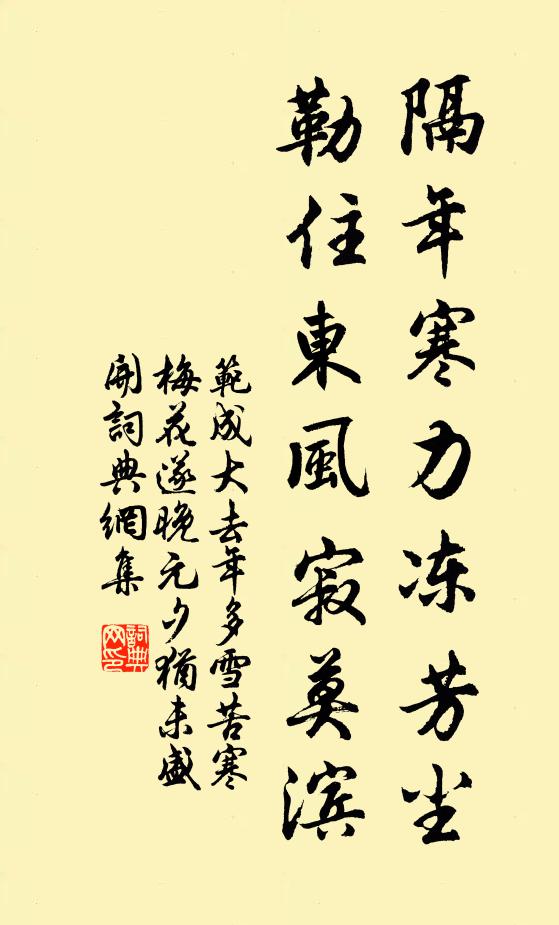 隔年寒力冻芳尘
勒住東風寂莫滨
範成大去年多雪苦寒
梅花遂晚元夕猶未盛
開詞典網集
詞典
网印